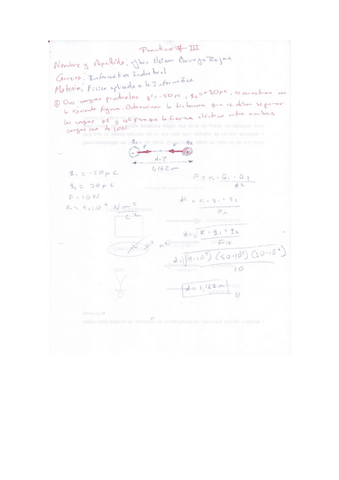 Practica # III
Nombre y Apellido,
Carrera, Informatica Industrial
Materia, Fisica aplicada a la Informatica
① Dos cargas puntuales q¹=-50μ, q₂=+30μ, se encuentran en
la siguiente figura. Determinar la distancia que se deben separar
las cargas q¹ y q² para que la fuerza eléctrica entre ambas
cargas sea de 10N.
q₁ q₂
F F
d=?
1,162 m
q₁ = -50μC
q₂ = 30μC
F = 10N
K = 9×10⁹ N m² / C²
F = K · q₁ · q₂ / d²
d² = K · q₁ · q₂ / F
d = √ K · q₁ · q₂ / F
d = √ (9·10⁹) (50·10⁻⁶) (30·10⁻⁶) / 10
d = 1,162 m